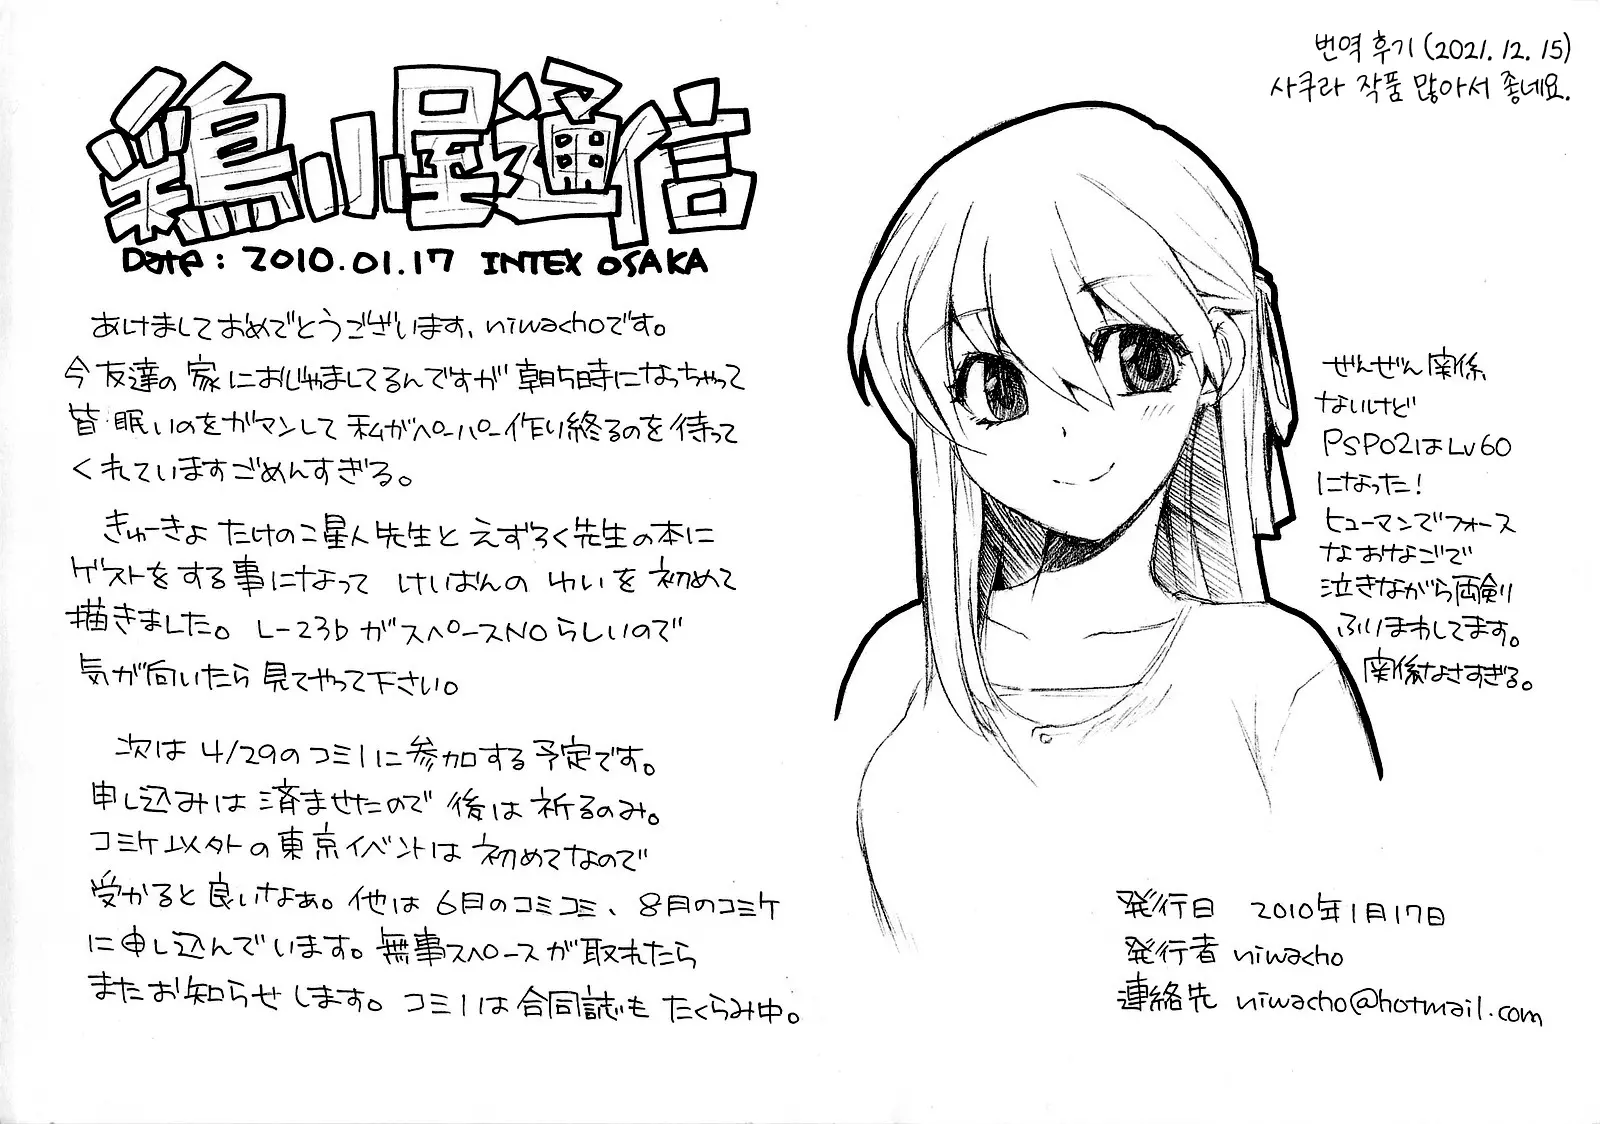 鶏小屋通信
Date: 2010.01.17 INTEX OSAKA
あけましておめでとうございます、niwachoです。
今友達の家におじゃましてるんですが朝5時になっちゃって
皆眠いのをガマンして私がペーパー作り終るのを待って
くれていますごめんすぎる。
きゅーきょたけのこ星人先生とえずろく先生の本に
ゲストをする事になって けいおんのゆいを初めて
描きました。L-23bがスペースNOらしいので
気が向いたら見てやって下さい。
次は4/29のコミ1に参加する予定です。
申し込みは済ませたので後は祈るのみ。
コミケ以外の東京イベントは初めてなので
受かると良いなぁ。他は6月のコミコミ、8月のコミケ
に申し込んでいます。無事スペースが取れたら
またお知らせします。コミ1は合同誌もたくらみ中。
번역 후기 (2021.12.15)
사쿠라 작품 많아서 좋네요.
ぜんぜん関係
ないけど
PSPO2はLv60
になった!
ヒューマンでフォース
なおなごで
泣きながら両剣
ふりまわしてます。
関係なさすぎる。
発行日 2010年1月17日
発行者 niwacho
連絡先 niwacho@hotmail.com